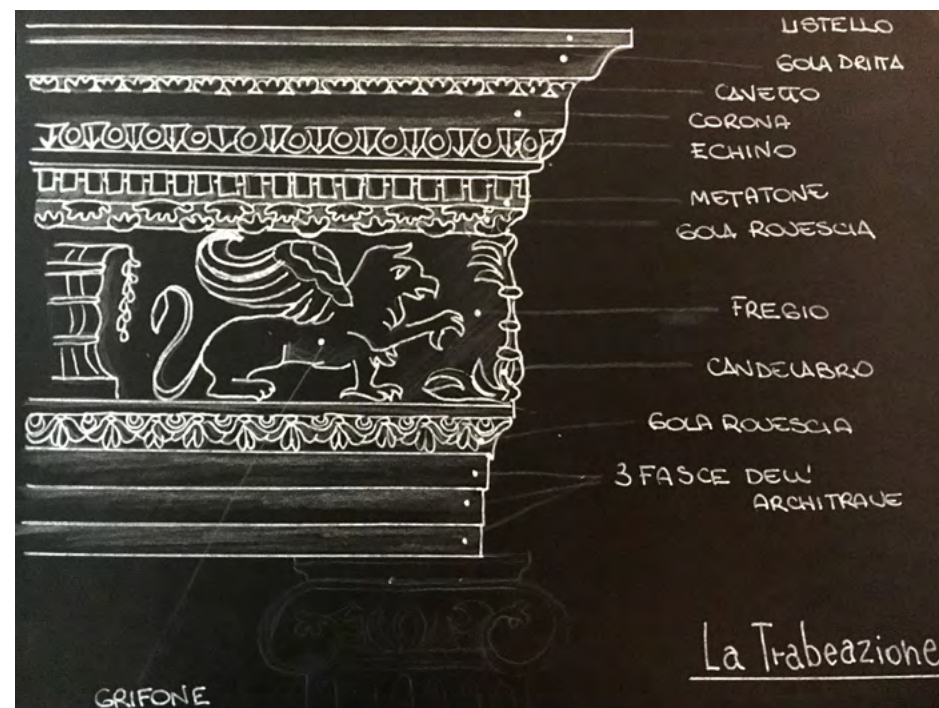 LISTELLO
GOLA DRITTA
CAVETTO
CORONA
ECHINO
METATONE
GOLA ROVESCIA
FREGIO
CANDELABRO
GOLA ROVESCIA
3 FASCE DELL'
ARCHITRAVE
La Trabeazione
GRIFONE